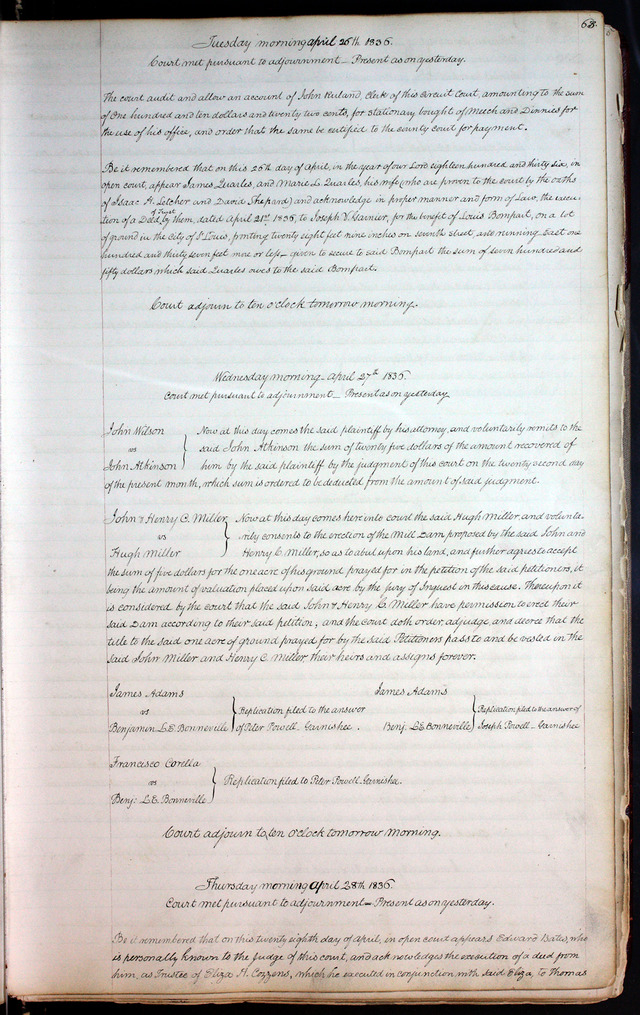 68.
Tuesday morning April 26th 1836.
Court met pursuant to adjournment – Present as on yesterday.
The court audit and allow an account of John Ruland, Clerk of this Circuit Court, amounting to the sum
of One hundred and ten dollars and twenty two cents, for stationary bought of Meech and Dinnies for
the use of his office, and order that the same be certified to the county court for payment.
Be it remembered that on this 26th day of April, in the year of our Lord eighteen hundred and thirty six, in
open court, appear James Quarles, and Marie L. Quarles, his wife (who are proven to the court by the oaths
of Isaac H. Letcher and David Shepard) and acknowledge in proper manner and form of Law, the execu-
tion of a Deed of Trust by them, dated April 21st 1836, to Joseph V. Garnier, for the benefit of Louis Bompart, on a lot
of ground in the City of St Louis, fronting twenty eight feet nine inches on seventh street, and running East one
hundred and thirty seven feet more or less – given to secure to said Bompart the sum of seven hundred and
fifty dollars which said Quarles owes to the said Bompart.
Court adjourn to ten o'clock tomorrow morning.
Wednesday morning – April 27th 1836.
Court met pursuant to adjournment – Present as on yesterday
John Wilson
vs
John Atkinson
Now at this day comes the said plaintiff by his attorney, and voluntarily remits to the
said John Atkinson the sum of twenty five dollars of the amount recovered of
him by the said plaintiff by the judgment of this court on the twenty second day
of the present month, which sum is ordered to be deducted from the amount of said judgment.
John & Henry C. Miller
vs
Hugh Miller
Now at this day comes here into court the said Hugh Miller, and volunta-
rily consents to the erection of the Mill Dam proposed by the said John and
Henry C. Miller, so as to abut upon his land, and further agrees to accept
the sum of five dollars for the one acre of his ground prayed for in the petition of the said petitioners, it
being the amount of valuation placed upon said acre by the jury of Inquest in this cause. Thereupon it
is considered by the court that the said John & Henry C. Miller have permission to erect their
said Dam according to their said petition, and the court doth order, adjudge, and decree that the
title to the said one acre of ground prayed for by the said Petitioners pass to and be vested in the
said John Miller and Henry C. Miller, their heirs and assigns forever.
James Adams
vs
Benjamin L.E. Bonneville
Replication filed to the answer
of Peter Powell, Garnishee.
James Adams
Benj. L.E. Bonneville
Replication filed to the answer of
Joseph Powell – Garnishee
Francisco Corella
vs
Benj: L.E. Bonneville
Replication filed to Peter Powell, Garnishee.
Court adjourn to ten o'clock tomorrow morning.
Thursday morning April 28th 1836.
Court met pursuant to adjournment – Present as on yesterday.
Be it remembered that on this twenty eighth day of April, in open court appears Edward Bates, who
is personally known to the judge of this court, and acknowledges the execution of a deed from
him, as Trustee of Eliza H. Cozzens, which he executed in conjunction with said Eliza, to Thomas